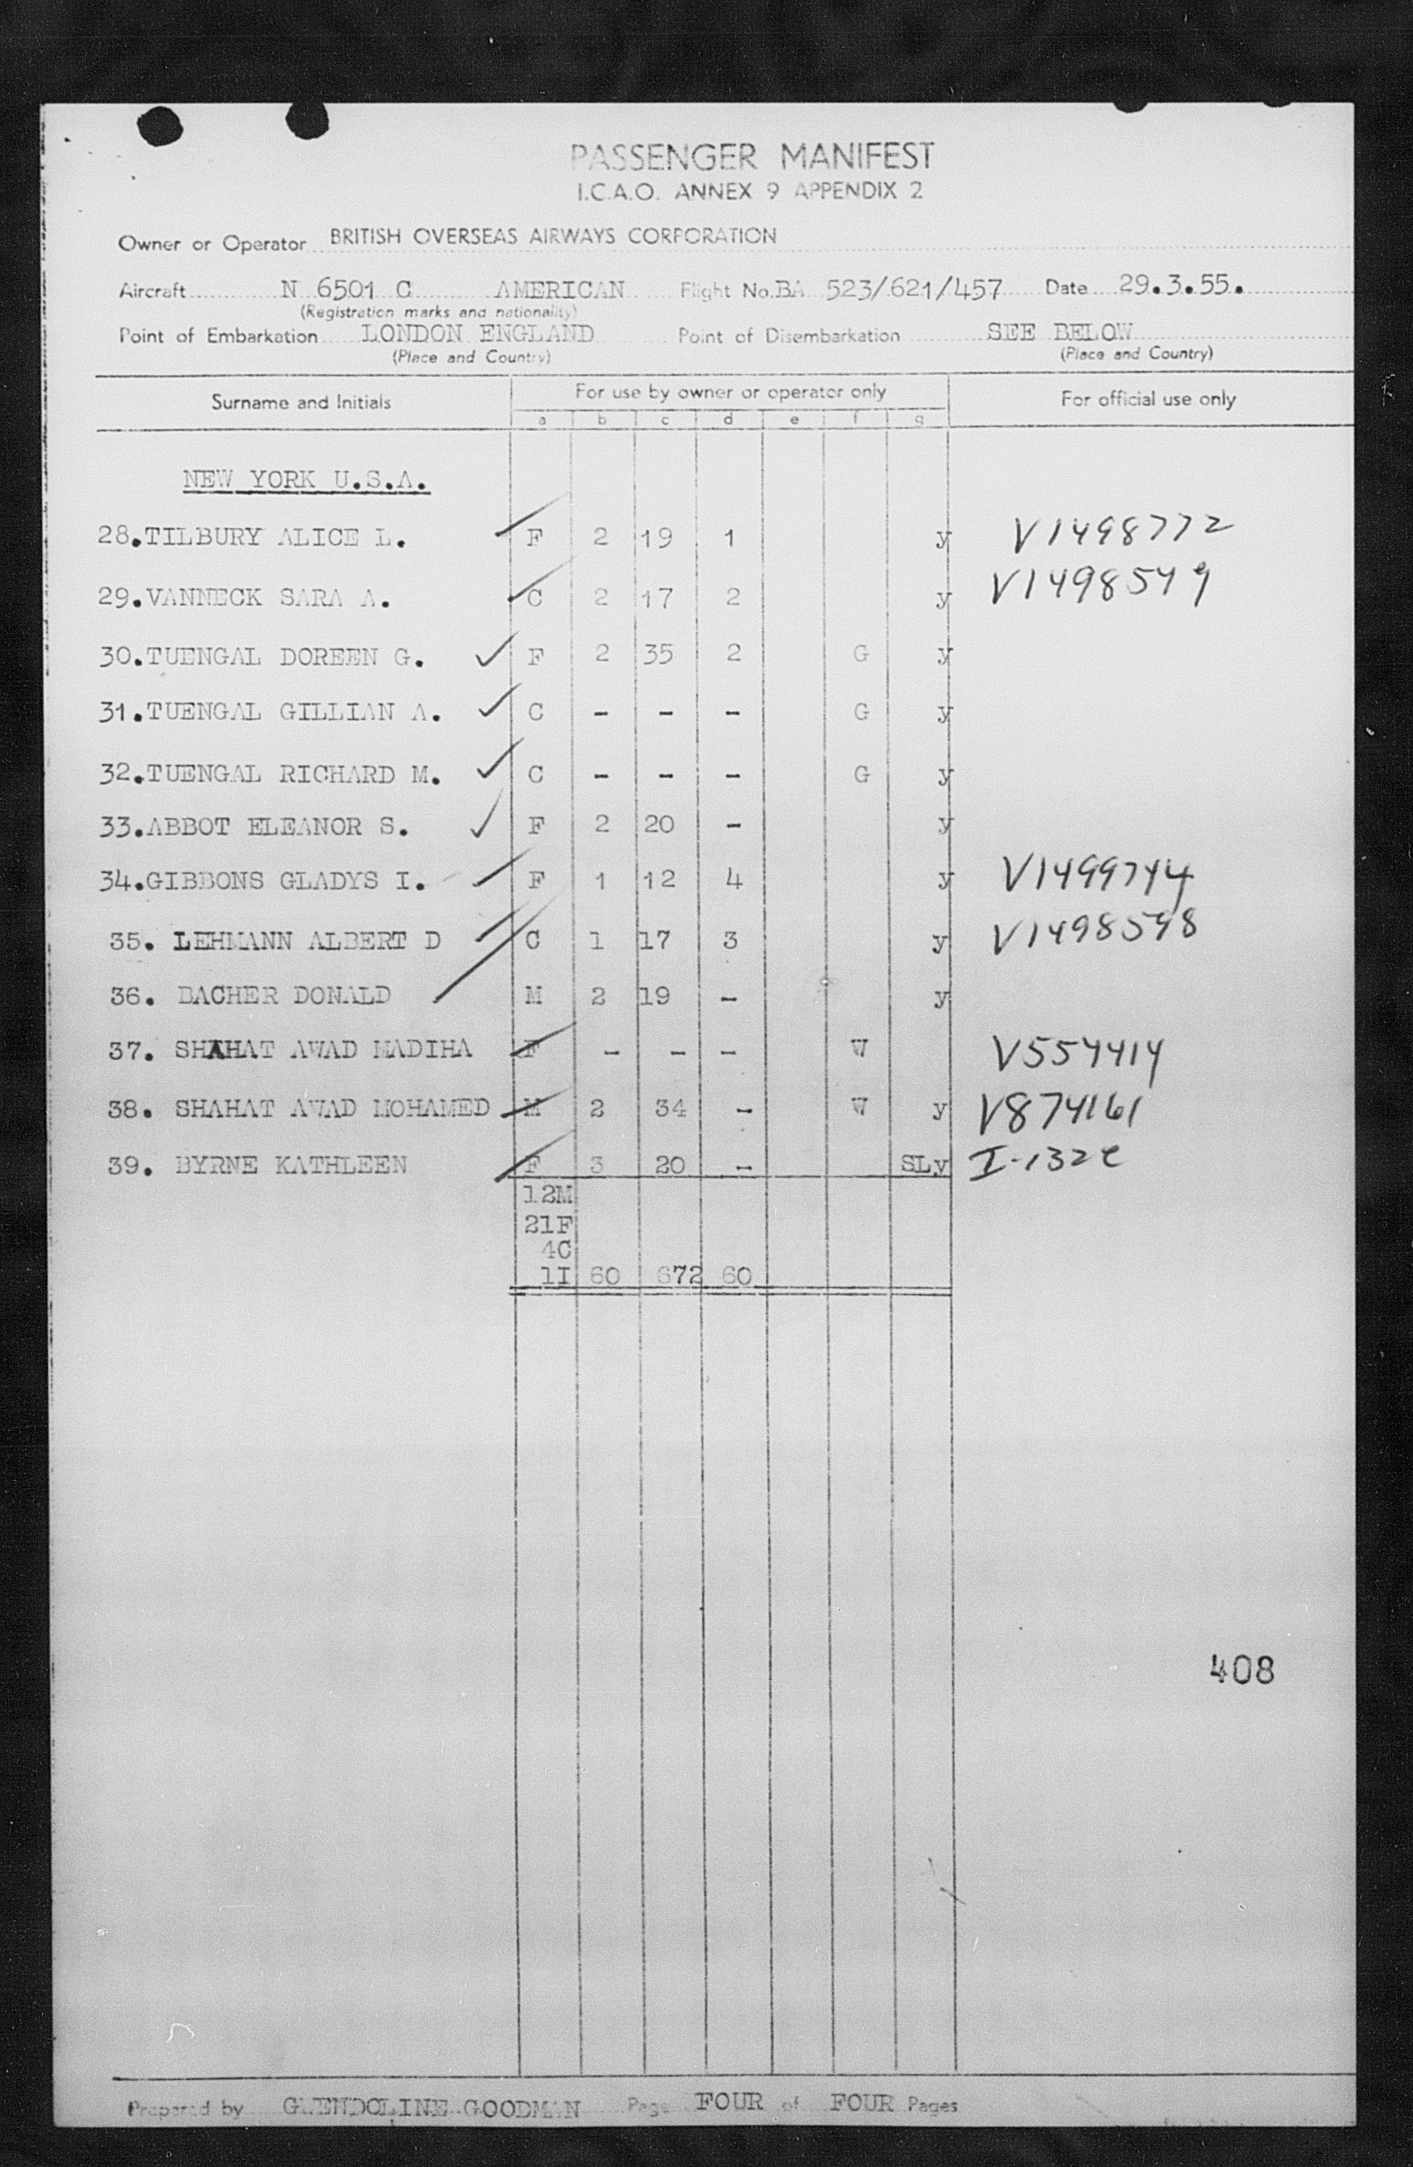 PASSENGER MANIFEST
I.C.A.O. ANNEX 9 APPENDIX 2
Owner or Operator BRITISH OVERSEAS AIRWAYS CORPORATION
Aircraft N 6501 C AMERICAN Flight No. BA 523/621/457 Date 29.3.55.
(Registration marks and nationality)
Point of Embarkation LONDON ENGLAND Point of Disembarkation SEE BELOW
(Place and Country) (Place and Country)
Surname and Initials For use by owner or operator only For official use only
a b c d e f g
NEW YORK U.S.A.
28.TILBURY ALICE L. F 2 19 1 y V1498772
29.VANNECK SARA A. C 2 17 2 y V1498549
30.TUENGAL DOREEN G. F 2 35 2 G y
31.TUENGAL GILLIAN A. C - - - G y
32.TUENGAL RICHARD M. C - - - G y
33.ABBOT ELEANOR S. F 2 20 - y
34.GIBBONS GLADYS I. F 1 12 4 y V1499744
35. LEHMANN ALBERT D C 1 17 3 y V1498548
36. BACHER DONALD M 2 19 - y
37. SHAHAT AWAD MADIHA F - - - W V554414
38. SHAHAT AWAD MOHAMED M 2 34 - W y V874161
39. BYRNE KATHLEEN F 3 20 - SLy I-132
12M
21F
4C
1I 60 672 60
408
Prepared by GLENDOLINE GOODMAN Page FOUR of FOUR Pages